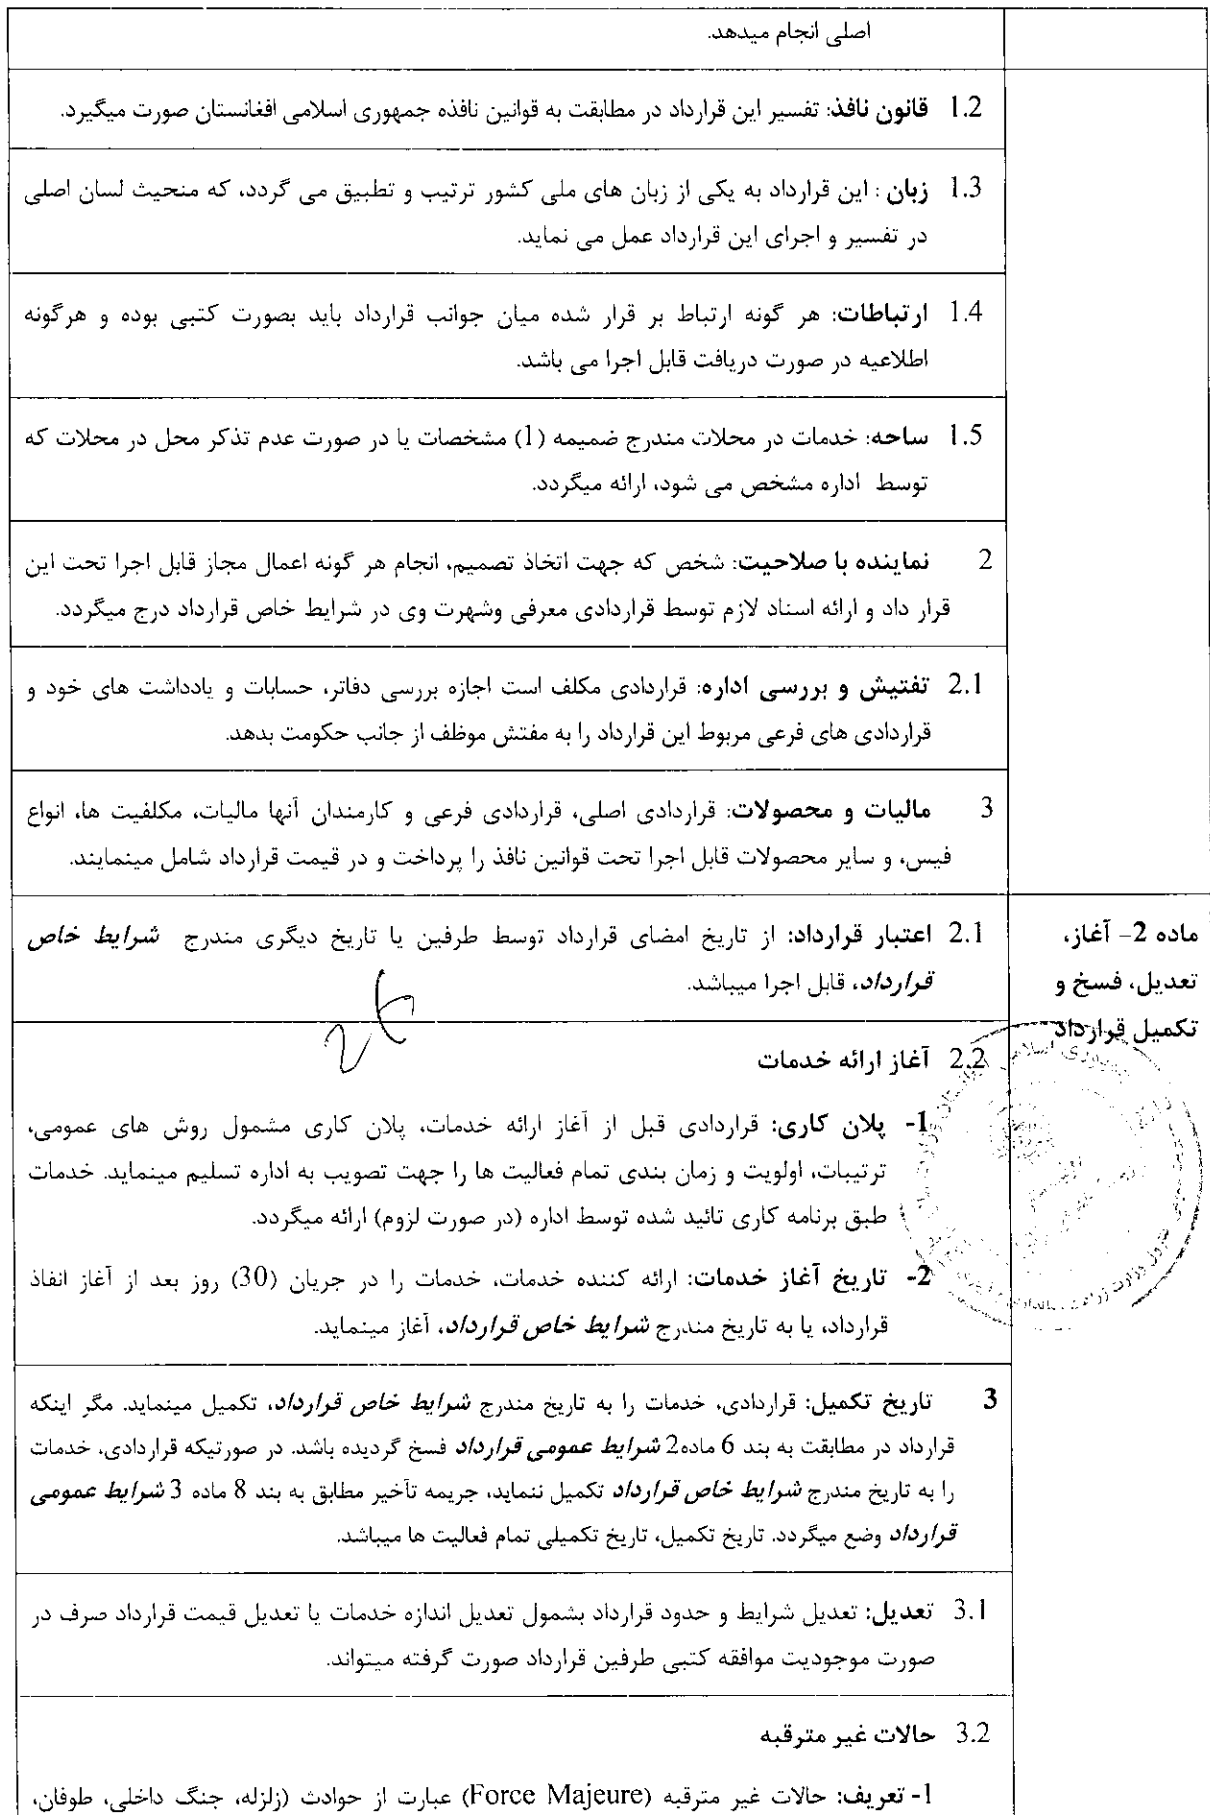 اصلی انجام میدهد.
1.2 قانون نافذ: تفسیر این قرارداد در مطابقت به قوانین نافذه جمهوری اسلامی افغانستان صورت میگیرد.
1.3 زبان : این قرارداد به یکی از زبان های ملی کشور ترتیب و تطبیق می گردد، که منحیث لسان اصلی
در تفسیر و اجرای این قرارداد عمل می نماید.
1.4 ارتباطات: هر گونه ارتباط بر قرار شده میان جوانب قرارداد باید بصورت کتبی بوده و هرگونه
اطلاعیه در صورت دریافت قابل اجرا می باشد.
1.5 ساحه: خدمات در محلات مندرج ضمیمه (1) مشخصات یا در صورت عدم تذکر محل در محلات که
توسط اداره مشخص می شود، ارائه میگردد.
2 نماینده با صلاحیت: شخص که جهت اتخاذ تصمیم، انجام هر گونه اعمال مجاز قابل اجرا تحت این
قرار داد و ارائه اسناد لازم توسط قراردادی معرفی وشهرت وی در شرایط خاص قرارداد درج میگردد.
2.1 تفتیش و بررسی اداره: قراردادی مکلف است اجازه بررسی دفاتر، حسابات و یادداشت های خود و
قراردادی های فرعی مربوط این قرارداد را به مفتش موظف از جانب حکومت بدهد.
3 مالیات و محصولات: قراردادی اصلی، قراردادی فرعی و کارمندان آنها مالیات، مکلفیت ها، انواع
فیس، و سایر محصولات قابل اجرا تحت قوانین نافذ را پرداخت و در قیمت قرارداد شامل مینمایند.
ماده 2- آغاز،
تعدیل، فسخ و
تکمیل قرارداد
2.1 اعتبار قرارداد: از تاریخ امضای قرارداد توسط طرفین یا تاریخ دیگری مندرج شرایط خاص
قرارداد، قابل اجرا میباشد.
2.2 آغاز ارائه خدمات
1- پلان کاری: قراردادی قبل از آغاز ارائه خدمات، پلان کاری مشمول روش های عمومی،
ترتیبات، اولویت و زمان بندی تمام فعالیت ها را جهت تصویب به اداره تسلیم مینماید. خدمات
طبق برنامه کاری تائید شده توسط اداره (در صورت لزوم) ارائه میگردد.
2- تاریخ آغاز خدمات: ارائه کننده خدمات، خدمات را در جریان (30) روز بعد از آغاز انفاذ
قرارداد، یا به تاریخ مندرج شرایط خاص قرارداد، آغاز مینماید.
3 تاریخ تکمیل: قراردادی، خدمات را به تاریخ مندرج شرایط خاص قرارداد، تکمیل مینماید. مگر اینکه
قرارداد در مطابقت به بند 6 ماده2 شرایط عمومی قرارداد فسخ گردیده باشد. در صورتیکه قراردادی، خدمات
را به تاریخ مندرج شرایط خاص قرارداد تکمیل ننماید، جریمه تأخیر مطابق به بند 8 ماده 3 شرایط عمومی
قرارداد وضع میگردد. تاریخ تکمیل، تاریخ تکمیلی تمام فعالیت ها میباشد.
3.1 تعدیل: تعدیل شرایط و حدود قرارداد بشمول تعدیل اندازه خدمات یا تعدیل قیمت قرارداد صرف در
صورت موجودیت موافقه کتبی طرفین قرارداد صورت گرفته میتواند.
3.2 حالات غیر مترقبه
1- تعریف: حالات غیر مترقبه (Force Majeure) عبارت از حوادث (زلزله، جنگ داخلی، طوفان،